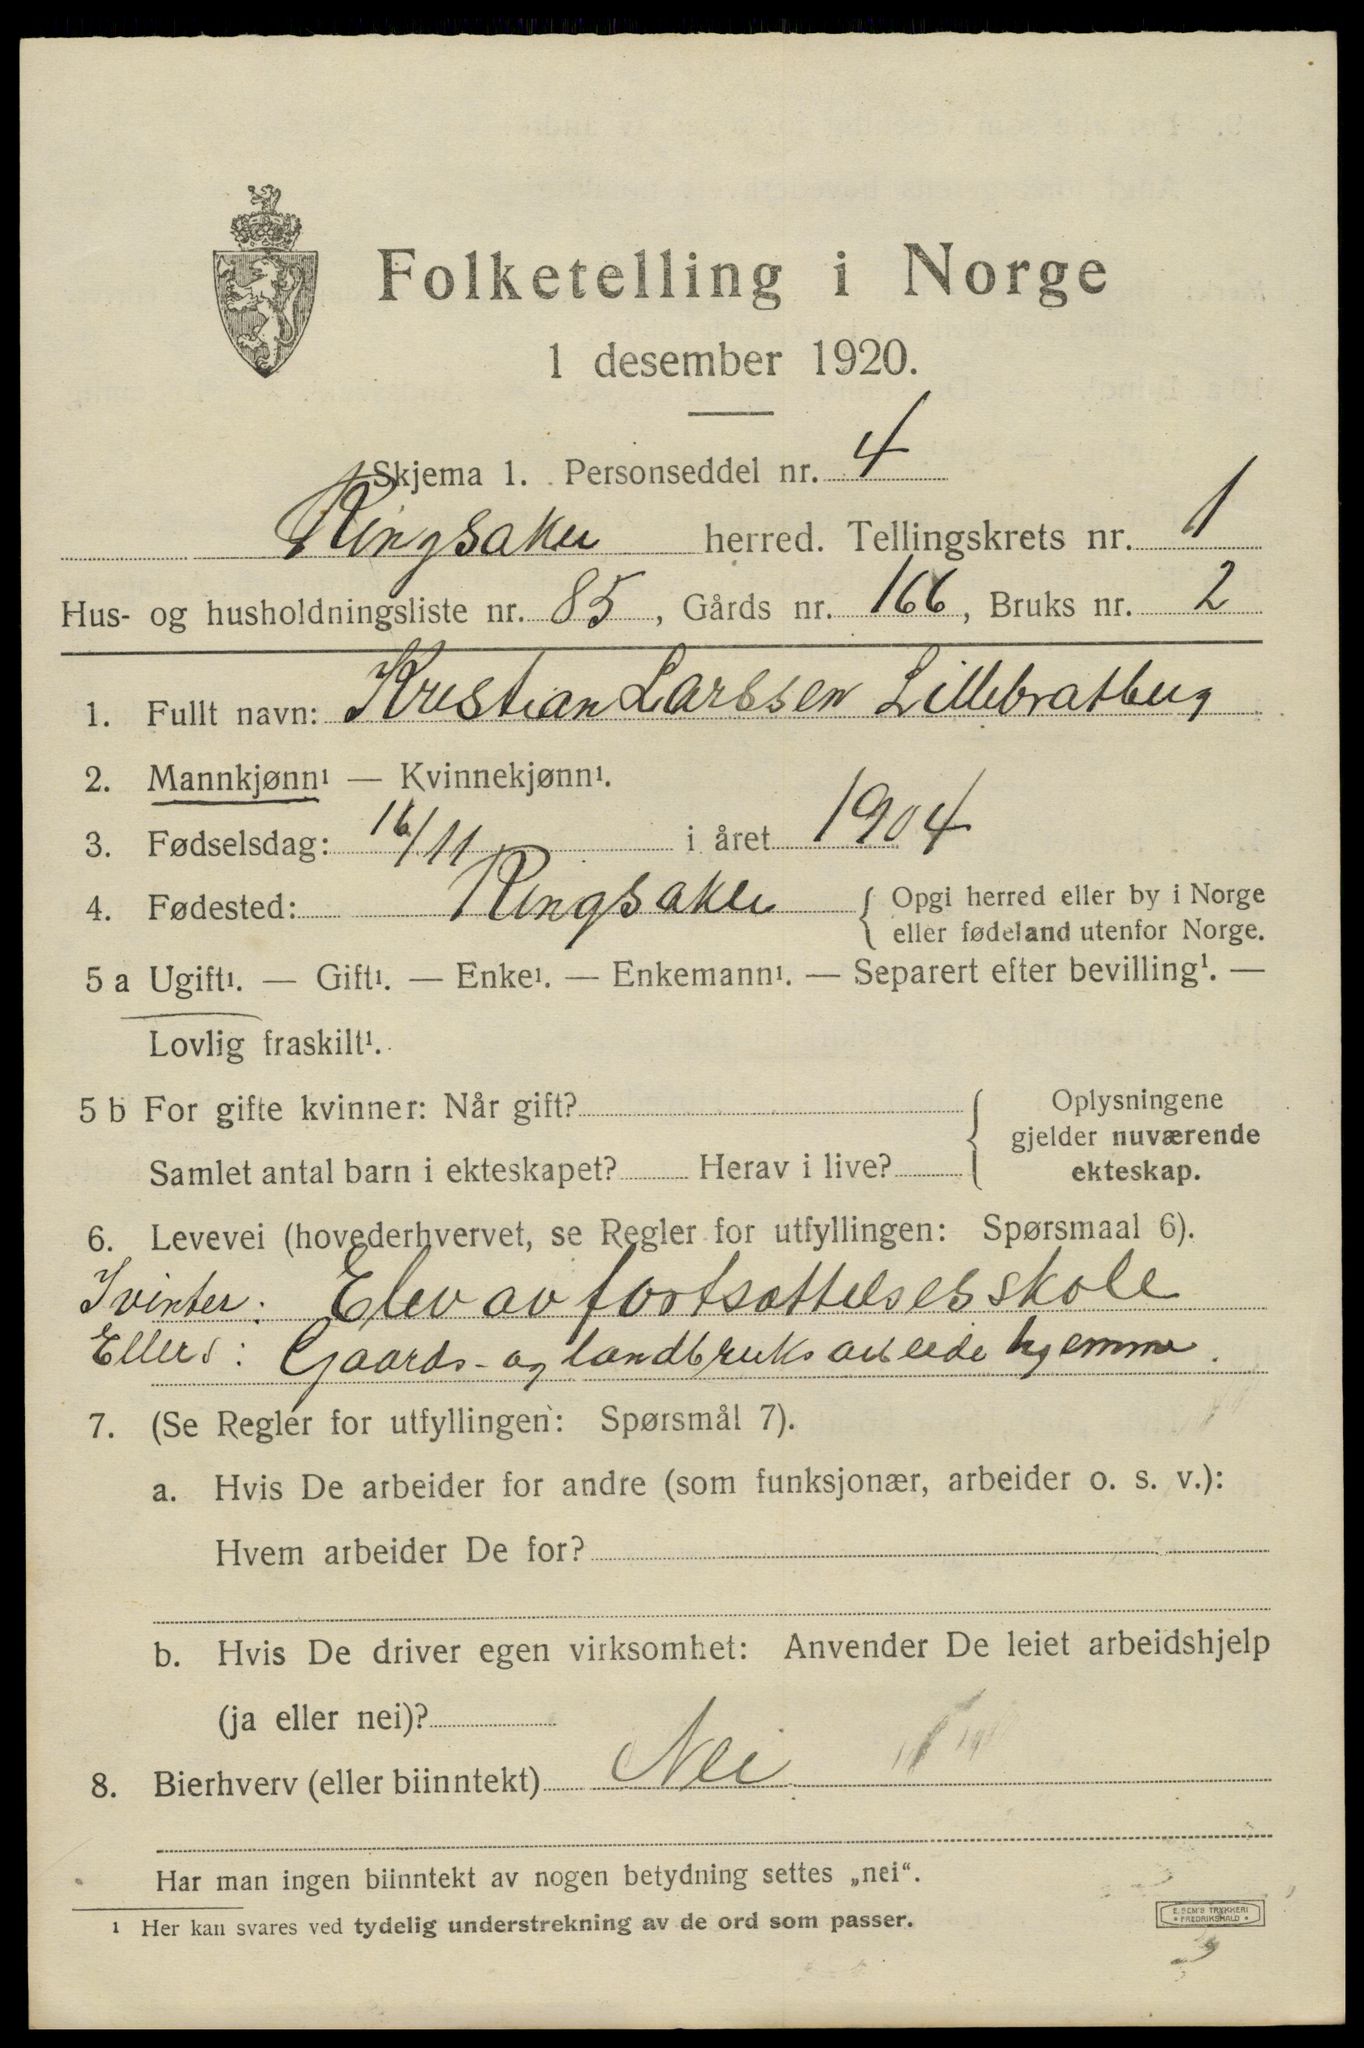 Folketelling i Norge
1 desember 1920.
Skjema 1. Personseddel nr. 4
Ringsaker herred. Tellingskrets nr. 1
Hus- og husholdningsliste nr. 85, Gårds nr. 166, Bruks nr. 2
1. Fullt navn: Kristian Larssen Lillebratberg
2. Mannkjønn¹ — Kvinnekjønn¹.
3. Fødselsdag: 16/11 i året 1904
4. Fødested: Ringsaker { Opgi herred eller by i Norge
eller fødeland utenfor Norge.
5 a Ugift¹. — Gift¹. — Enke¹. — Enkemann¹. — Separert efter bevilling¹. —
Lovlig fraskilt¹.
5 b For gifte kvinner: Når gift? { Oplysningene
gjelder nuværende
Samlet antal barn i ekteskapet? Herav i live? ekteskap.
6. Levevei (hovederhvervet, se Regler for utfyllingen: Spørsmaal 6).
I vinter: Elev av fortsættelsesskole
Ellers: Gaards- og landbruksarbeide hjemme.
7. (Se Regler for utfyllingen: Spørsmål 7).
a. Hvis De arbeider for andre (som funksjonær, arbeider o. s. v.):
Hvem arbeider De for?
b. Hvis De driver egen virksomhet: Anvender De leiet arbeidshjelp
(ja eller nei)?
8. Bierhverv (eller biinntekt) Nei
Har man ingen biinntekt av nogen betydning settes „nei“.
¹ Her kan svares ved tydelig understrekning av de ord som passer.
E. SEM'S TRYKKERI
FREDRIKSHALD